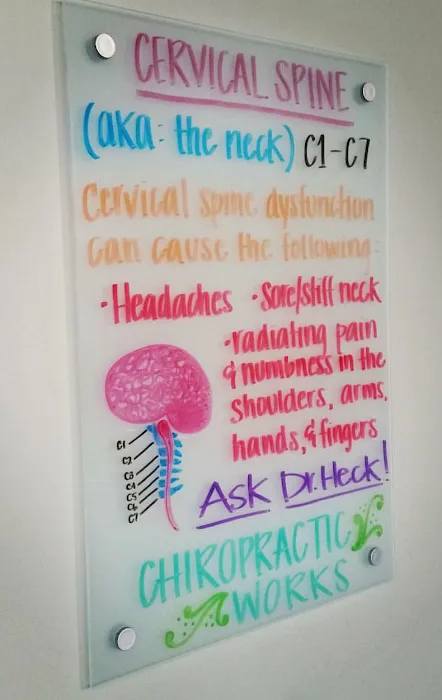 CERVICAL SPINE
(aka: the neck) C1-C7
Cervical spine dysfunction
can cause the following:
·Headaches ·Sore/stiff neck
·radiating pain
& numbness in the
shoulders, arms,
hands, & fingers
C1
C2
C3
C4
C5
C6
C7
Ask Dr. Heck!
CHIROPRACTIC
WORKS